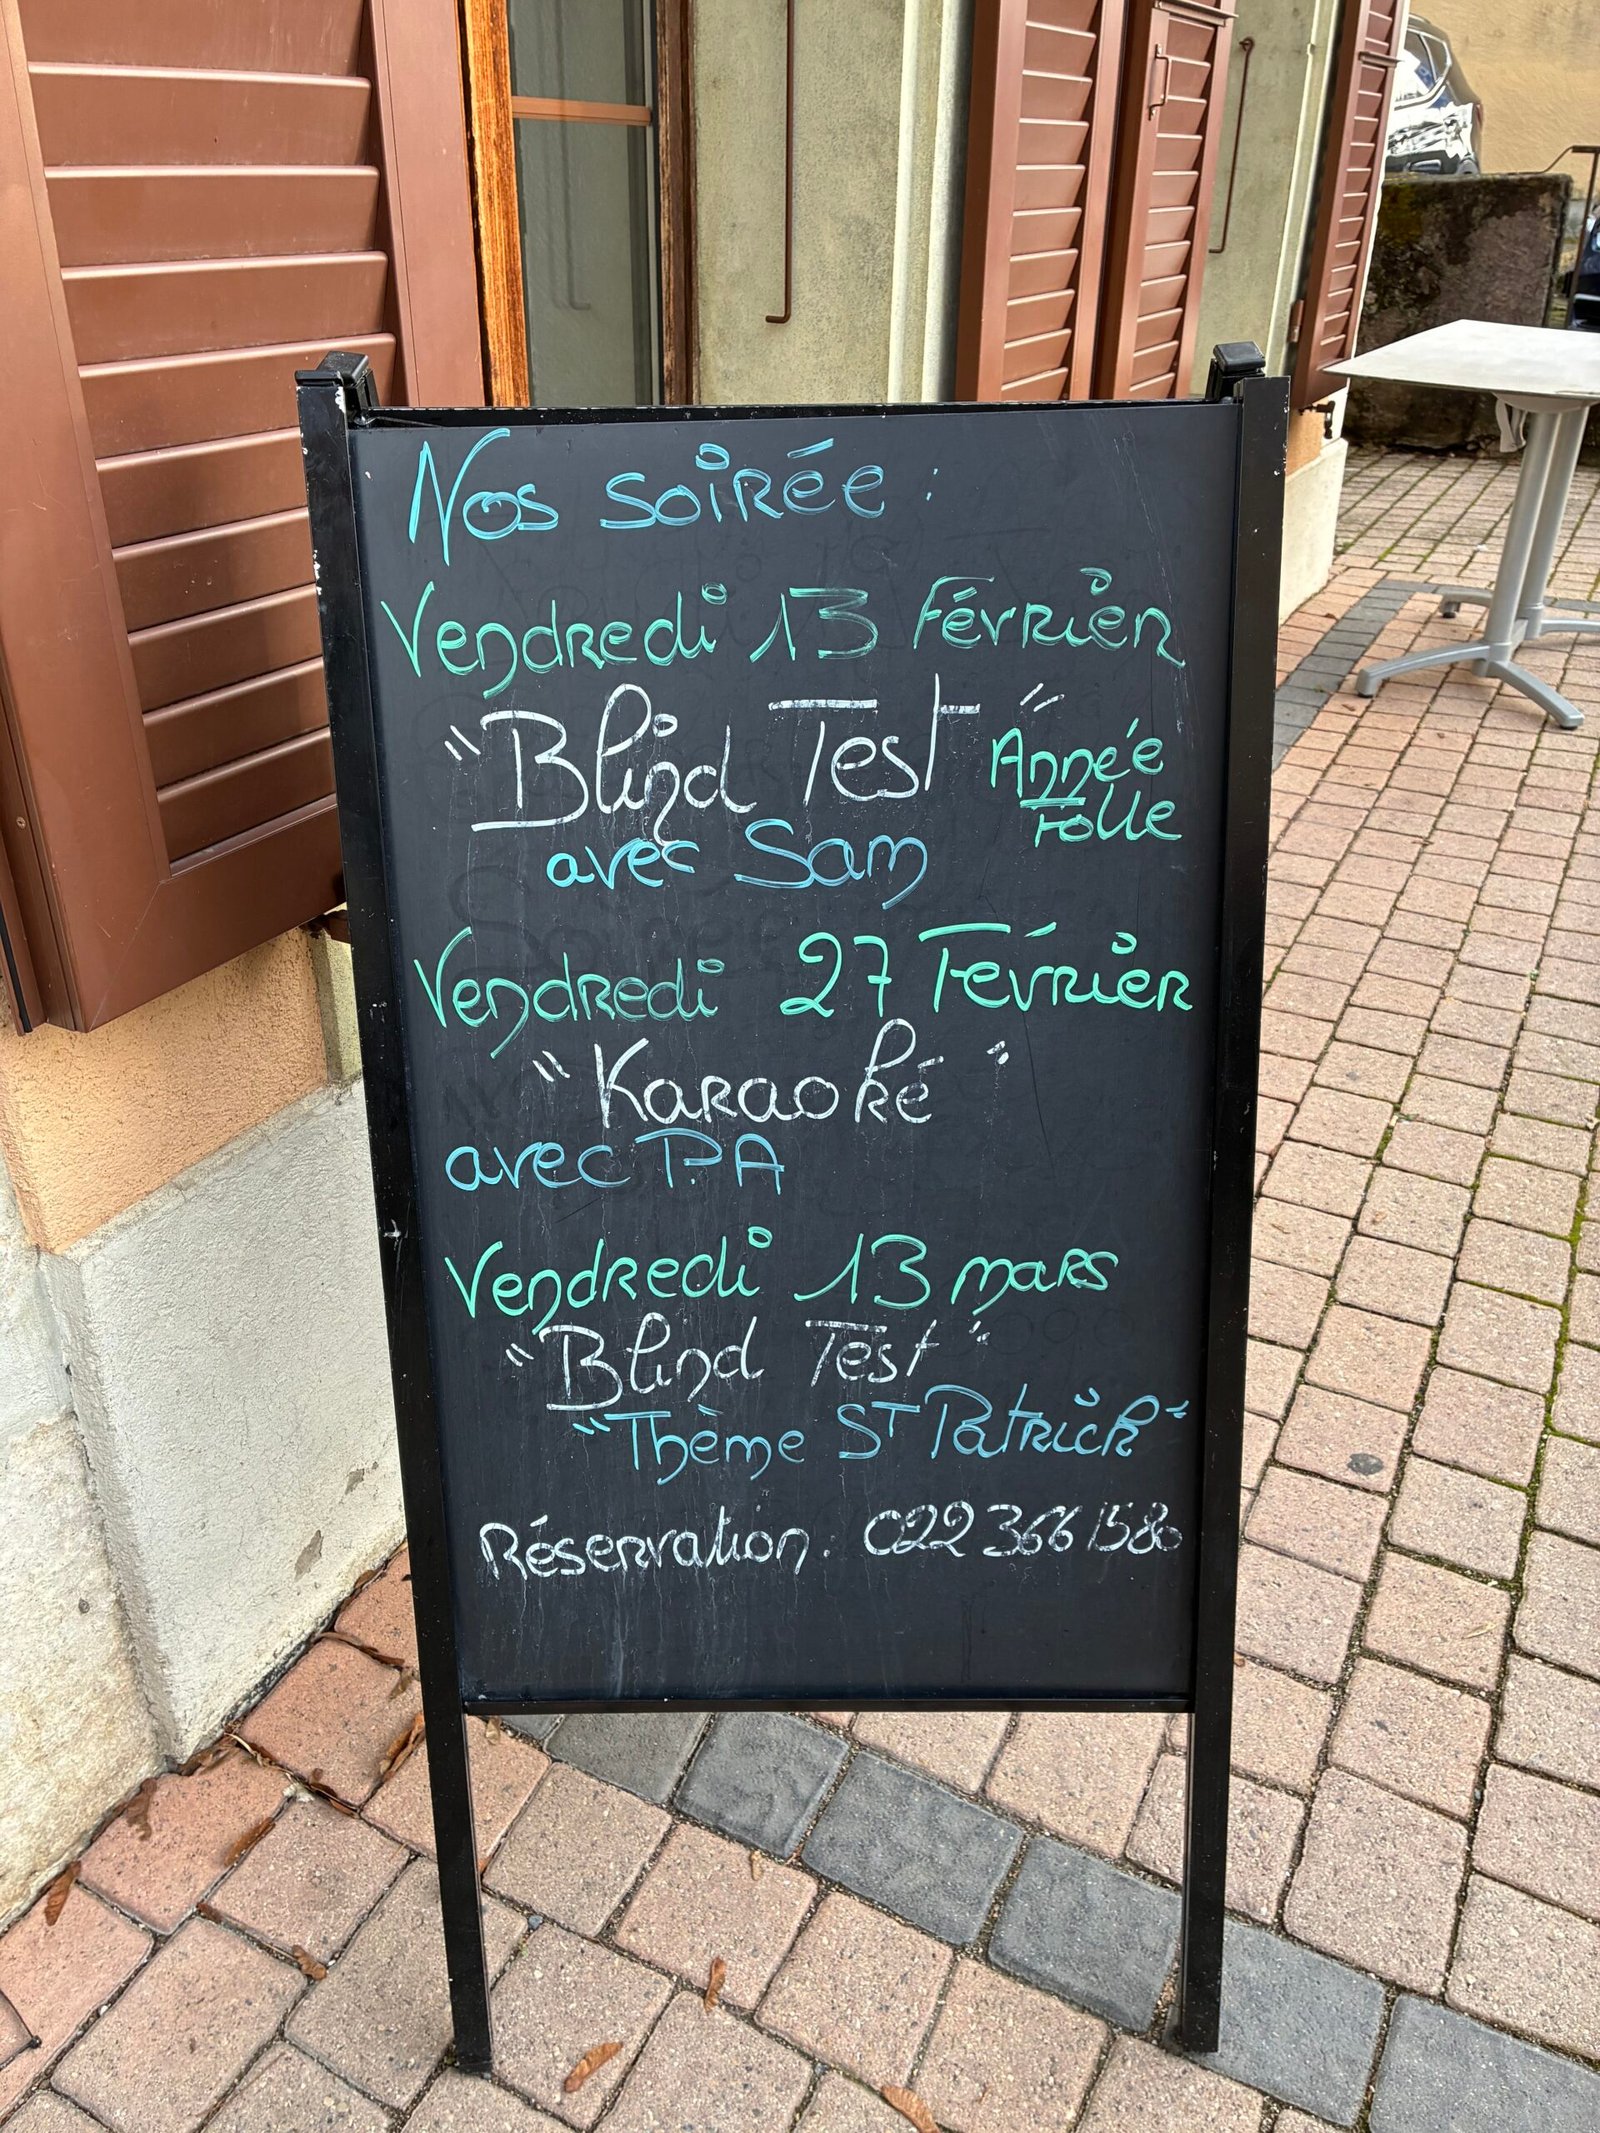 Nos soirée :
Vendredi 13 Février
"Blind Test" Année
Folle
avec Sam
Vendredi 27 Février
"Karaoké"
avec P.A
Vendredi 13 mars
"Blind Test"
"Thème ST Patrick"
Réservation : 022 366 1580